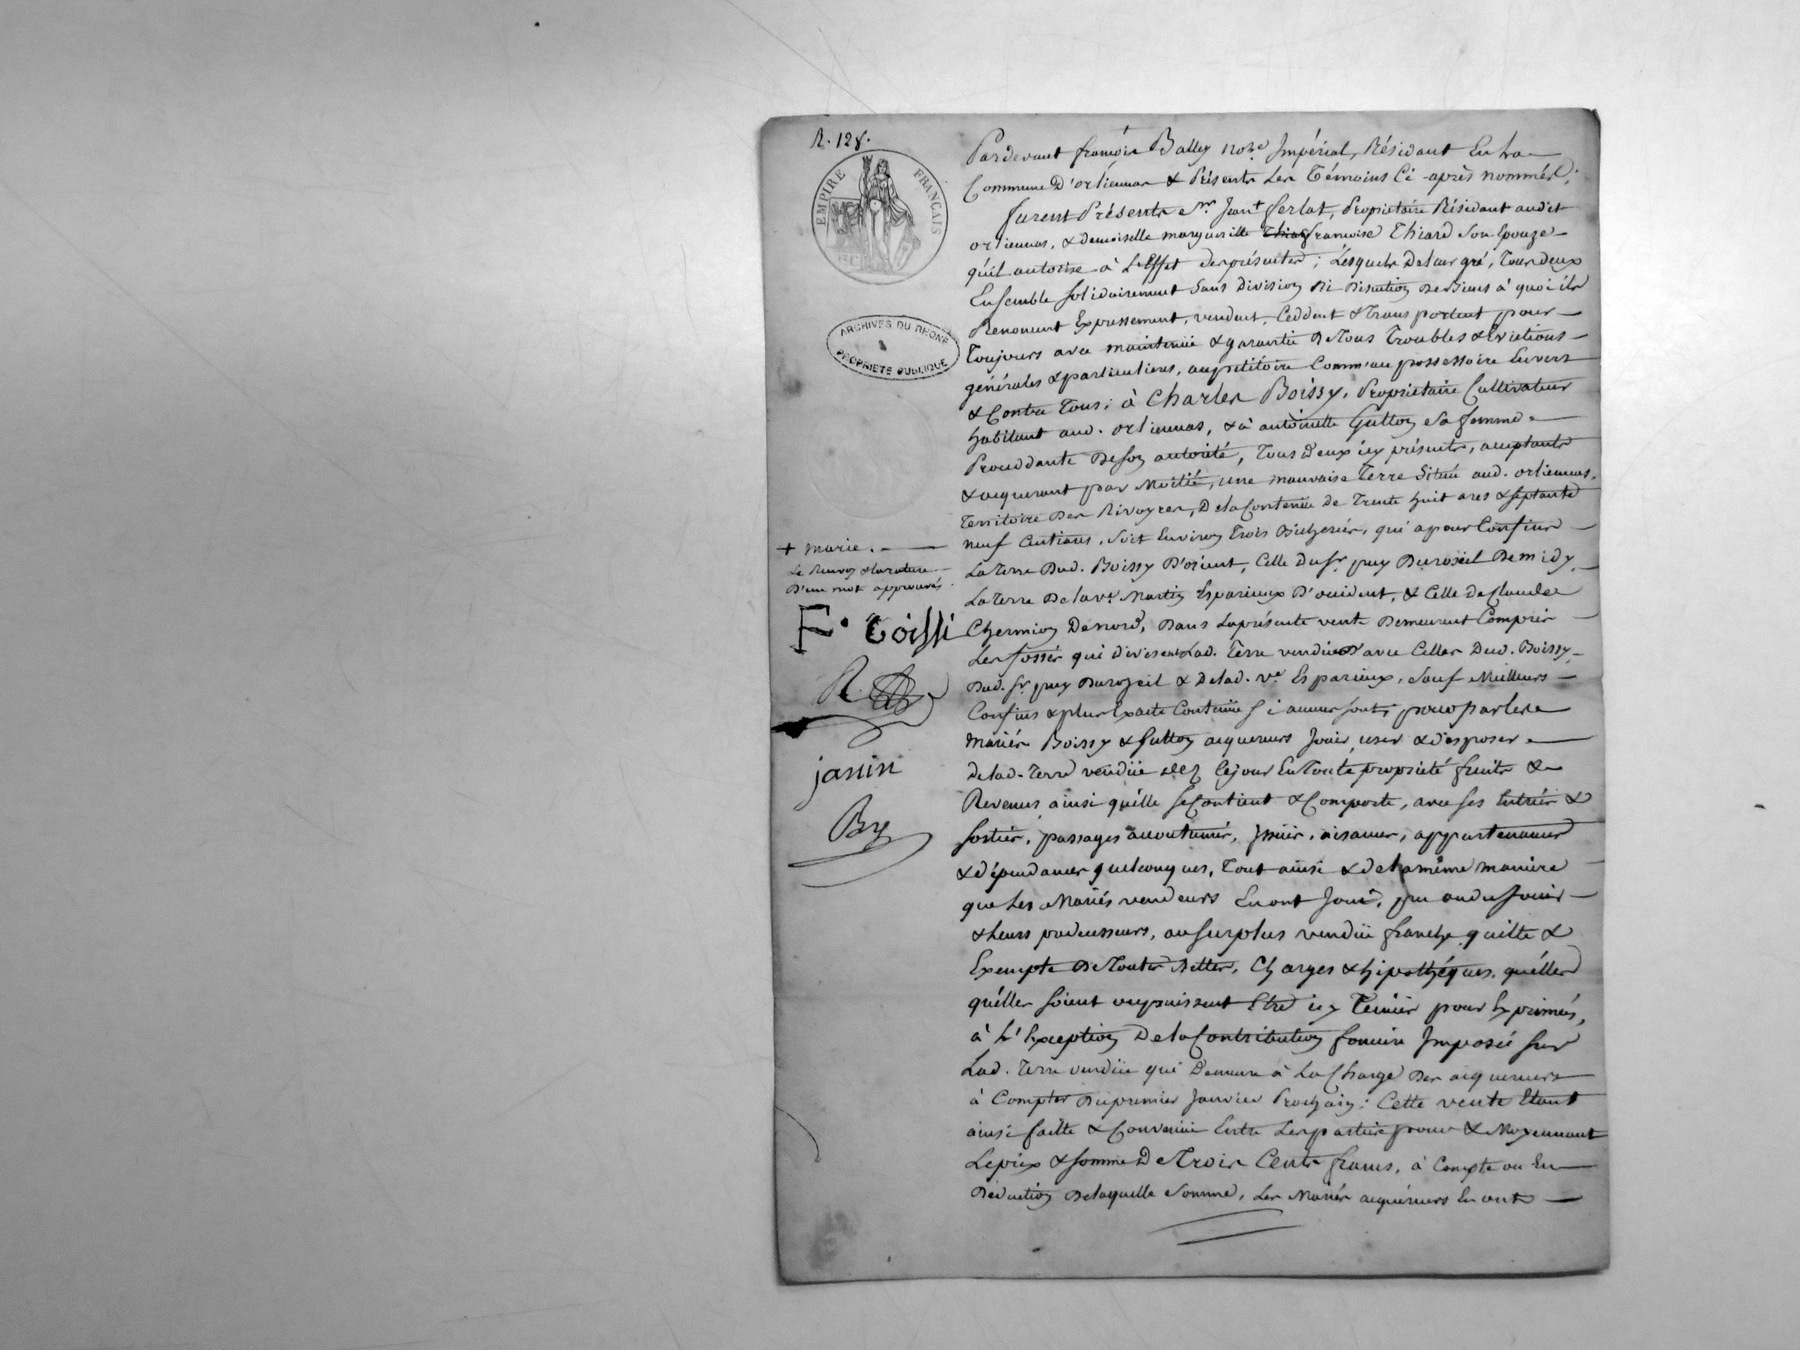 R. 128.
EMPIRE FRANÇAIS
ARCHIVES DU RHONE
PROPRIÉTÉ PUBLIQUE
Pardevant françois Bally not.e Impérial, Résidant En la
Commune D'orliennas & Présents Les Témoins Ci-après nommés;
furent Présents Sr. Jean + ferlat, Proprietaire Résidant audit
orliennas, & demoiselle marguerite francoise Thiard Son Epouze
qu'il autorise à L'Effet des présentes; Lésquels De Leur gré, Tous deux
Ensemble solidairement Sans Division Ni Discution De Biens à quoi ils
Renoncent Expressement, vendent, Ceddent & Transportent pour
Toujours avec maintenüe & garantie De Tous Troubles & Evictions
générales & particulieres, au petitoire Comm'au possessoire Envers
& Contre Tous; à Charles Boissy, Proprietaire Cultivateur
habitant aud. orliennas, & à antoinette Gutton Sa femme
Proceddante De Son autorité, Tous Deux icy présents, acceptants
& acquerant par Moitié, une mauvaise Terre Située aud. orliennas,
Territoire Des Rivoyres, De la Contenüe de Trente huit ares & septante
neuf Centiares, Soit Environ Trois Bicherées, qui a pour Confins
La Terre Dud. Boissy D'orient, Celle du Sr. puy Durozeil De midy,
La Terre De la ve. Martin Esparieux D'occident, & Celle de Claude
Chermion De nord, Dans La présente vente Demeurent Compris
Les fossés qui divisent Lad. Terre vendüe d'avec Celles Dud. Boissy,
Dud. Sr. puy Durozeil & De lad. ve. Esparieux, Sauf Meilleurs
Confins & plus Exacte Contenüe Si aucuns sont; pour par les
Mariés Boissy & Gutton acquereurs Jouir, user & disposer
de lad. Terre vendüe dez Cejour En Toute propriété fruits &
Revenus, ainsi qu'elle se Contient & Comporte, avec ses Entrées &
Sorties, passages accoutumés, aisances, appartenances
& dépendances quelconques, Tout ainsi & de la même manière
que Les Mariés vendeurs En ont Joui, pu ou du Jouir
& Leurs predecesseurs, au surplus vendüe franche quitte &
Exempte De Toutes Dettes, Charges & hipothéques, qu'elles
qu'elles soient ou puissent Etre icy Tenües pour Exprimés,
à L'Exception De la Contribution fonciere Imposée sur
Lad. Terre vendüe qui Demeure à La Charge Des acquereurs
à Compter Du premier Janvier Prochain; Cette vente Etant
ainsi faitte & Convenüe Entre Les parties pour & Moyennant
Le prix & somme De Trois Cents francs, à Compte ou En
Déduction De laquelle Somme, Les Mariés acquéreurs En ont
+ marie.
Le Renvoy & la rature
D'un mot approuvés
F. Coissi
janin
By